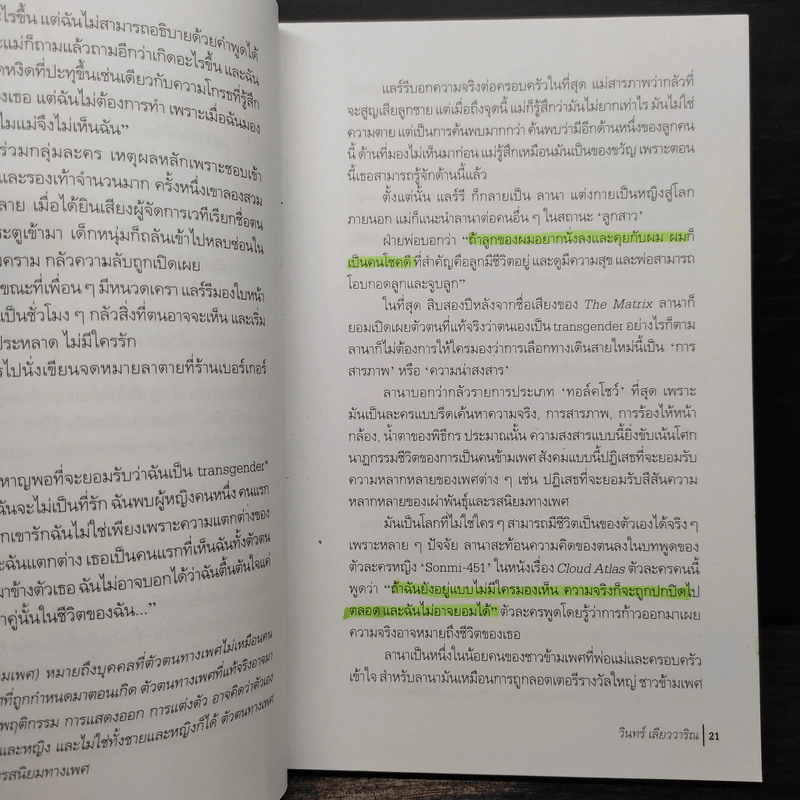 ะไรขึ้น แต่ฉันไม่สามารถอธิบายด้วยคำพูดได้
ะแม่ก็ถามแล้วถามอีกว่าเกิดอะไรขึ้น และฉัน
ดหงิดที่ปะทุขึ้นเช่นเดียวกับความโกรธที่รู้สึก
งเธอ แต่ฉันไม่ต้องการทำ เพราะเมื่อฉันมอง
ไมแม่จึงไม่เห็นฉัน”
ร่วมกลุ่มละคร เหตุผลหลักเพราะชอบเข้า
และรองเท้าจำนวนมาก ครั้งหนึ่งเขาลองสวม
ลาย เมื่อได้ยินเสียงผู้จัดการเวทีเรียกชื่อตน
ะตูเข้ามา เด็กหนุ่มก็ถลันเข้าไปหลบซ่อนใน
งคราม กลัวความลับถูกเปิดเผย
ขณะที่เพื่อน ๆ มีหนวดเครา แลร์รีมองใบหน้า
เป็นชั่วโมง ๆ กลัวสิ่งที่ตนอาจจะเห็น และเริ่ม
ประหลาด ไม่มีใครรัก
รไปนั่งเขียนจดหมายลาตายที่ร้านเบอร์เกอร์
หาญพอที่จะยอมรับว่าฉันเป็น transgender*
ฉันจะไม่เป็นที่รัก ฉันพบผู้หญิงคนหนึ่ง คนแรก
กเขารักฉันไม่ใช่เพียงเพราะความแตกต่างของ
ะฉันแตกต่าง เธอเป็นคนแรกที่เห็นฉันทั้งตัวตน
มาข้างตัวเธอ ฉันไม่อาจบอกได้ว่าฉันตื้นตันใจแค่
าคู่นั้นในชีวิตของฉัน...”
ามเพศ) หมายถึงบุคคลที่ตัวตนทางเพศไม่เหมือนคน
ศที่ถูกกำหนดมาตอนเกิด ตัวตนทางเพศที่แท้จริงอาจมา
พฤติกรรม การแสดงออก การแต่งตัว อาจคิดว่าตัวเอง
และหญิง และไม่ใช่ทั้งชายและหญิงก็ได้ ตัวตนทางเพศ
รสนิยมทางเพศ
แลร์รีบอกความจริงต่อครอบครัวในที่สุด แม่สารภาพว่ากลัวที่
จะสูญเสียลูกชาย แต่เมื่อถึงจุดนี้ แม่ก็รู้สึกว่ามันไม่ยากเท่าไร มันไม่ใช่
ความตาย แต่เป็นการค้นพบมากกว่า ค้นพบว่ามีอีกด้านหนึ่งของลูกคน
นี้ ด้านที่มองไม่เห็นมาก่อน แม่รู้สึกเหมือนมันเป็นของขวัญ เพราะตอน
นี้เธอสามารถรู้จักด้านนี้แล้ว
ตั้งแต่นั้น แลร์รี ก็กลายเป็น ลานา แต่งกายเป็นหญิงสู่โลก
ภายนอก แม่ก็แนะนำลานาต่อคนอื่น ๆ ในสถานะ ‘ลูกสาว’
ฝ่ายพ่อบอกว่า “ถ้าลูกของผมอยากนั่งลงและคุยกับผม ผมก็
เป็นคนโชคดี ที่สำคัญคือลูกมีชีวิตอยู่ และดูมีความสุข และพ่อสามารถ
โอบกอดลูกและจูบลูก”
ในที่สุด สิบสองปีหลังจากชื่อเสียงของ The Matrix ลานาก็
ยอมเปิดเผยตัวตนที่แท้จริงว่าตนเองเป็น transgender อย่างไรก็ตาม
ลานาก็ไม่ต้องการให้ใครมองว่าการเลือกทางเดินสายใหม่นี้เป็น ‘การ
สารภาพ’ หรือ ‘ความน่าสงสาร’
ลานาบอกว่ากลัวรายการประเภท ‘ทอล์คโชว์’ ที่สุด เพราะ
มันเป็นละครแบบรีดเค้นหาความจริง, การสารภาพ, การร้องไห้หน้า
กล้อง, น้ำตาของพิธีกร ประมาณนั้น ความสงสารแบบนี้ยิ่งขับเน้นโศก
นาฏกรรมชีวิตของการเป็นคนข้ามเพศ สังคมแบบนี้ปฏิเสธที่จะยอมรับ
ความหลากหลายของเพศต่าง ๆ เช่น ปฏิเสธที่จะยอมรับสีสันความ
หลากหลายของเผ่าพันธุ์และรสนิยมทางเพศ
มันเป็นโลกที่ไม่ใช่ใคร ๆ สามารถมีชีวิตเป็นของตัวเองได้จริง ๆ
เพราะหลาย ๆ ปัจจัย ลานาสะท้อนความคิดของตนลงในบทพูดของ
ตัวละครหญิง ‘Sonmi-451’ ในหนังเรื่อง Cloud Atlas ตัวละครคนนี้
พูดว่า “ถ้าฉันยังอยู่แบบไม่มีใครมองเห็น ความจริงก็จะถูกปกปิดไป
ตลอด และฉันไม่อาจยอมได้” ตัวละครพูดโดยรู้ว่าการก้าวออกมาเผย
ความจริงอาจหมายถึงชีวิตของเธอ
ลานาเป็นหนึ่งในน้อยคนของชาวข้ามเพศที่พ่อแม่และครอบครัว
เข้าใจ สำหรับลานามันเหมือนการถูกลอตเตอรีรางวัลใหญ่ ชาวข้ามเพศ
วินทร์ เลียววาริณ 21